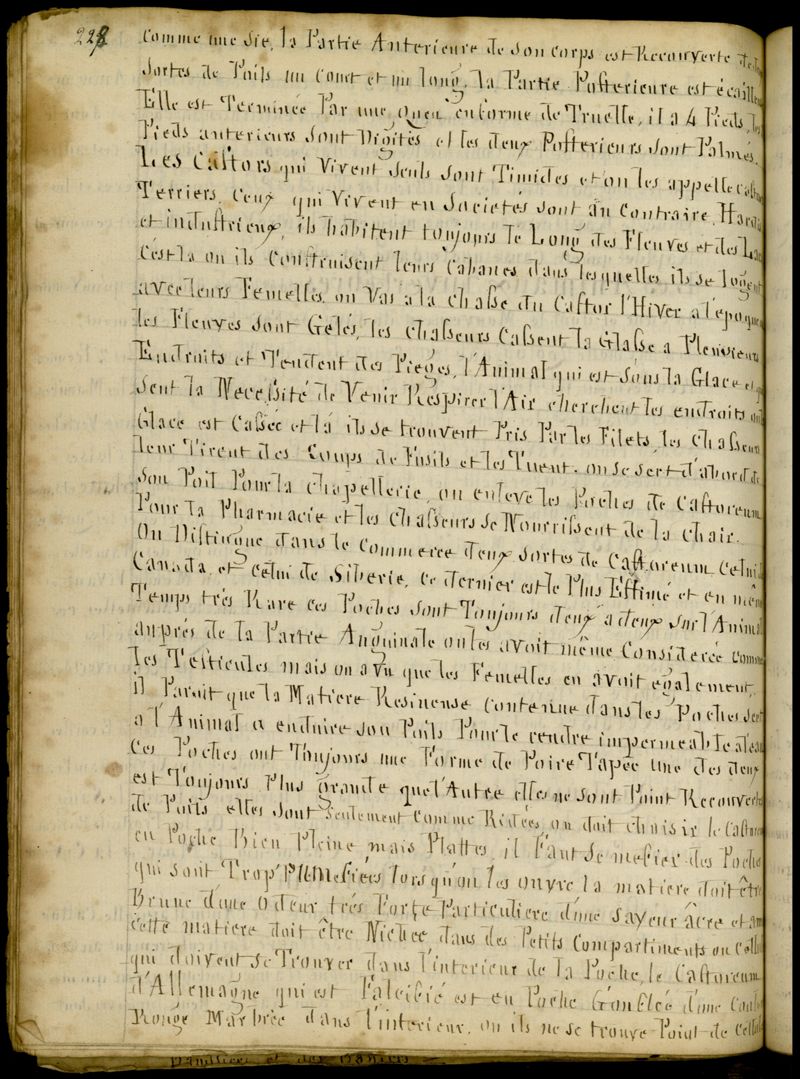 228
Comme une Sie, la Partie Anterieure de Son Corps est Recouverte de
Sortes de Poils un Court et un long, la Partie Posterieure est écaill
Elle est Terminée Par une Queu enforme de Truelle, il a 4 Pieds, les
Pieds anterieurs Sont Digités et les deux Posterieurs Sont Palmés.
Les Castors qui Vivent Seuls Sont Timides et on les appelle Castor
Terriers, Ceux qui Vivent en Societés Sont au Contraire Hardis
et industrieux, ils habitent toujours le Long des Fleuves et des Lac
C'est la ou ils Construisent leurs Cabanes dans lesquelles ils se logent
avec leurs Femelles, on Vas a la Chasse du Castor l'Hiver a l'epoque
les Fleuves Sont Gelés, les Chasseurs Cassent la Glasse a Plusieurs
Endroits et Tendent des Pieges, l'Animal qui est Sous la Glace et
Sent la Necessité de Venir Respirer l'Air cherchent les endroits ou
Glace est Cassée et la ils Se trouvent Pris Par les Filets, les Chasseurs
leur Tirent des Coups de Fusils et les Tuent. on Se Sert d'abord de
Son Poil Pour la Chapellerie, on enleve les Poches de Castoreum
Pour la Pharmacie et les Chasseurs Se Nourrissent de la Chair.
On Distingue dans le Commerce deux Sortes de Castoreum Celui d
Canada et Celui de Siberie, Ce dernier est le Plus Estimé et en même
Temps très Rare Ces Poches Sont Toujours deux a deux Sur l'Animal
auprés de la Partie Anguinale on les avoit même Considerée Comme
les Testicules mais on a vu que les Femelles en avoit egalement,
il Parait que la Matiere Resineuse Contenue dans les Poches Sert
a l'Animal a enduire Son Poils Pour le rendre impermeable a l'eau
Ces Poches ont Toujours une Forme de Poire Tapée une des deux
est Toujours Plus grande que l'Autre elles ne Sont Point Recouverte
de Poils elles Sont Seulement Comme Ridées, on doit choisir le Castoreum
en Poche Bien Pleine, mais Plattes, il Faut Se mefier des Poches
qui Sont Trop lorsqu'on les ouvre la matiere doit être
Brune d'une Odeur très Forte Particuliere d'une Saveur âcre et am
Cette matiere doit être Nichée dans des Petits Compartiments ou Cell
qui doivent Se Trouver dans l'interieur de la Poche, le Castoreum
d'Allemagne qui est Falcifié est en Poche Gonflée d'une Coul
Rouge Marbrée dans l'interieur, ou ils ne se trouve Point de Cellul